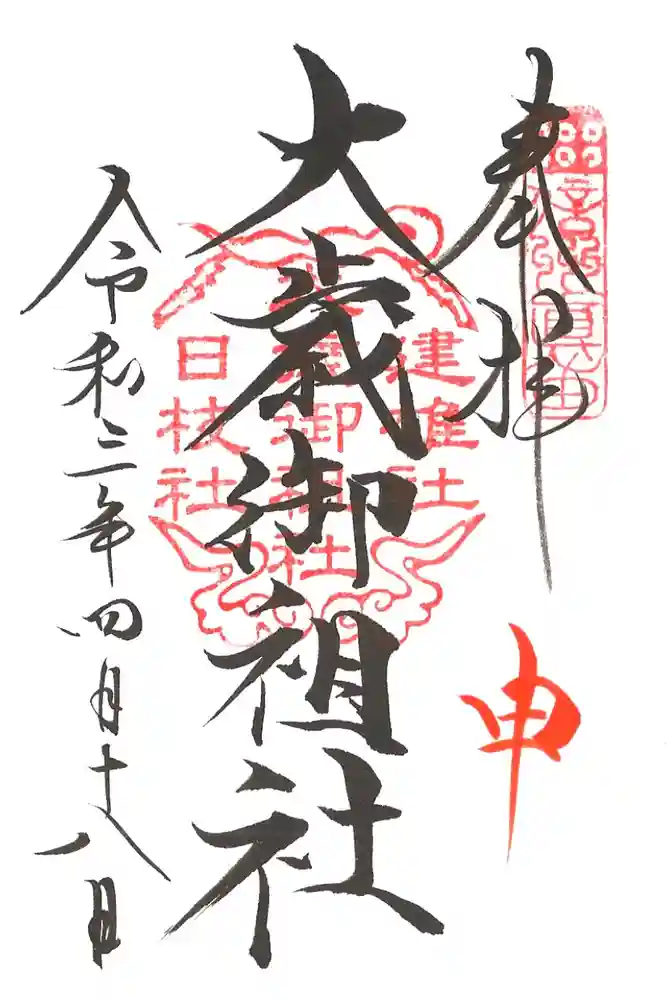 奉拝
申
大歳御祖社
令和三年四月十八日
建 社
大歳御祖社
日枝社